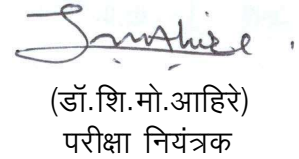 (डॉ.शि.मो.आहिरे)
परीक्षा नियंत्रक